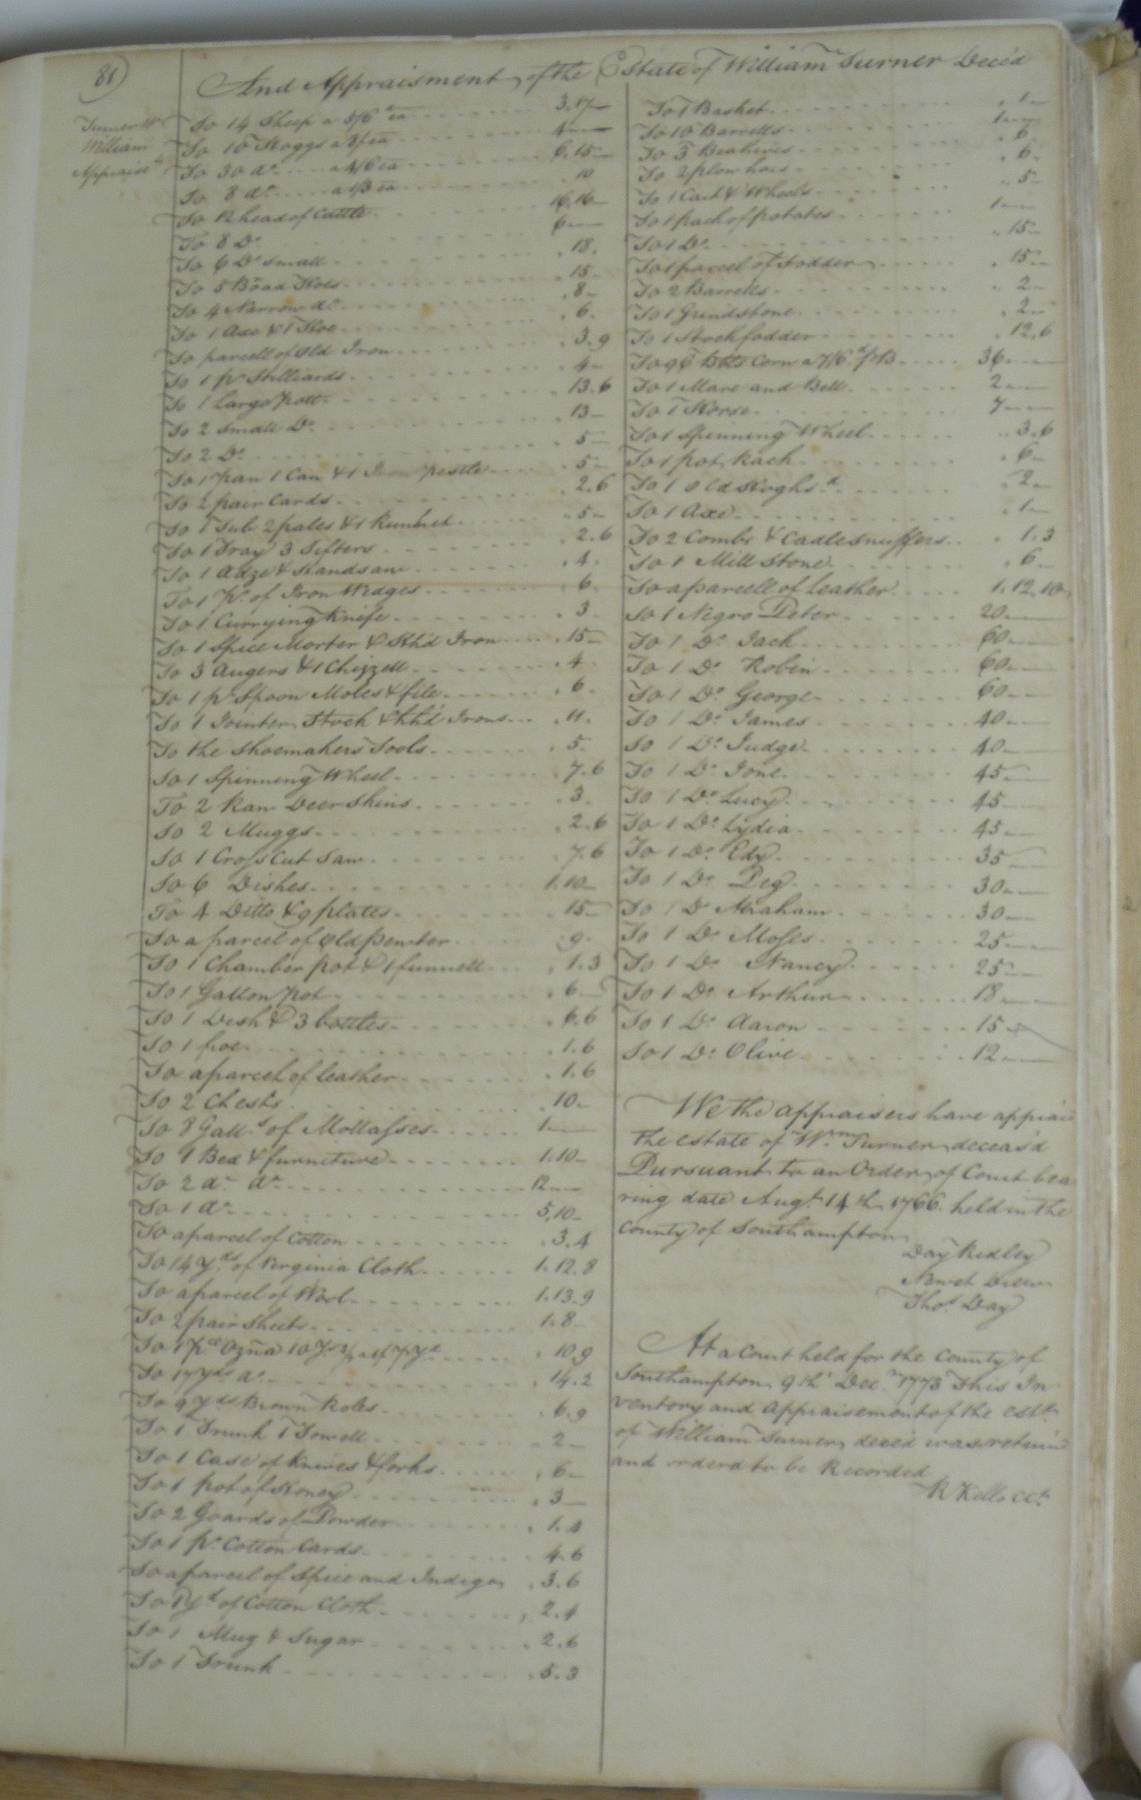 81)
And Appraisment of the Estate of William Turner Deced
Turner
William
Appraist
To 14 Sheep a 5/6 ea 3.17
To 16 Hoggs a 5/ ea 4
To 30 do a 4/6 ea 6.15
To 8 do a 1/3 ea 10
To 12 head of Cattle 16.16
To 8 Do 6
To 6 Do small .18.
To 5 Broad Hoes .15
To 4 Narrow do .8
To 1 Axe & 1 Hoe .6.
To parcell of Old Iron .3.9
To 1 pr Stilliards .4
To 1 Large pott .13.6
To 2 Small Do .13
To 2 Do .5
To 1 pan 1 Can & 1 Iron pestle .5
To 2 pair Cards .2.6
To 1 Tub 2 pales & 1 Runlret .5
To 1 Tray 3 Sifters .2.6
To 1 Adze & Handsaw .4.
To 1 pr of Iron Wedges .6.
To 1 Currying Knife .3
To 1 Spice Morter & Iron .15
To 3 Augers & 1 Chezzell .4.
To 1 pr Spoon Moles & file .6.
To 1 Jointer Stock & Irons .11.
To the Shoemakers Tools .5.
To 1 Spinneng Wheel .7.6
To 2 Raw Deer Skins .3.
To 2 Muggs .2.6
To 1 Cross Cut Saw .7.6
To 6 Dishes 1.10
To 4 Ditto & 9 plates .15
To a parcel of Old pewter .9.
To 1 Chamber pot & 1 funnell .1.3
To 1 Gallon pot .6
To 1 Desh & 3 bottles .6.6
To 1 foe .1.6
To a parcel of leather .1.6
To 2 Chests .10
To 8 Galls of Mollasses 1
To 1 Bed & furniture 1.10
To 2 do do 12
To 1 do 5.10
To a parcel of Cotton .3.4
To 14 yds of Virginia Cloth 1.12.8
To a parcel of Wool 1.13.9
To 2 pair Sheets 1.8
To 1 pce Ozna 10 Yds 10.9
To 17 yds do .14.2
To 9 yds Brown Roles .6.9
To 1 Trunk 1 Towell .2
To 1 Case of Knives & forks .6
To 1 pot of Honey .3
To 2 Goards of Powder .1.4
To 1 pr Cotton Cards .4.6
To a parcel of Spice and Indigo .3.6
To 1 yd of Cotton Cloth .2.4
To 1 Mug & Sugar .2.6
To 1 Trunk .5.3
To 1 Basket .1
To 10 Barrells 1
To 3 Beahives .6.
To 2 plow hoes .6.
To 1 Cart & Wheels .5
To 1 pach of potates 1
To 1 Do .15
To 1 parcel of Fodder .15
To 2 Barrells .2
To 1 Grindstone .2
To 1 Stack fodder .12.6
To 96 Bbls Corn a 7/6 pr B 36
To 1 Mare and Bell 2
To 1 Horse 7
To 1 Spenning Wheel .3.6
To 1 pot Rack .6
To 1 Old Hoghsd .2
To 1 Axe .1
To 2 Combs & Cadlesnuffers .1.3
To 1 Mill Stone .6
To a parcell of Leather 1.12.10
To 1 Negro Peter 20
To 1 Do Jack 60
To 1 Do Robin 60
To 1 Do George 60
To 1 Do James 40
To 1 Do Judge 40
To 1 Do Jone 45
To 1 Do Lucy 45
To 1 Do Lydia 45
To 1 Do Edy 35
To 1 Do Peg 30
To 1 Do Abraham 30
To 1 Do Moses 25
To 1 Do Nancy 25
To 1 Do Arthur 18
To 1 Do Aaron 15
To 1 Do Olive 12
We the appraisers have apprai
the estate of Wm Turner deceas'd
Pursuant to an Order of Court bea
ring date Augt 14th 1766 held in the
County of Southampton
Day Ridley
Newet Drew
Thos Day
At a Court held for the County of
Southampton 9th Decr 1773 This In
ventory and Appraisement of the Este
of William Turner deced was return'd
and orderd to be Recorded
R Kello CCk